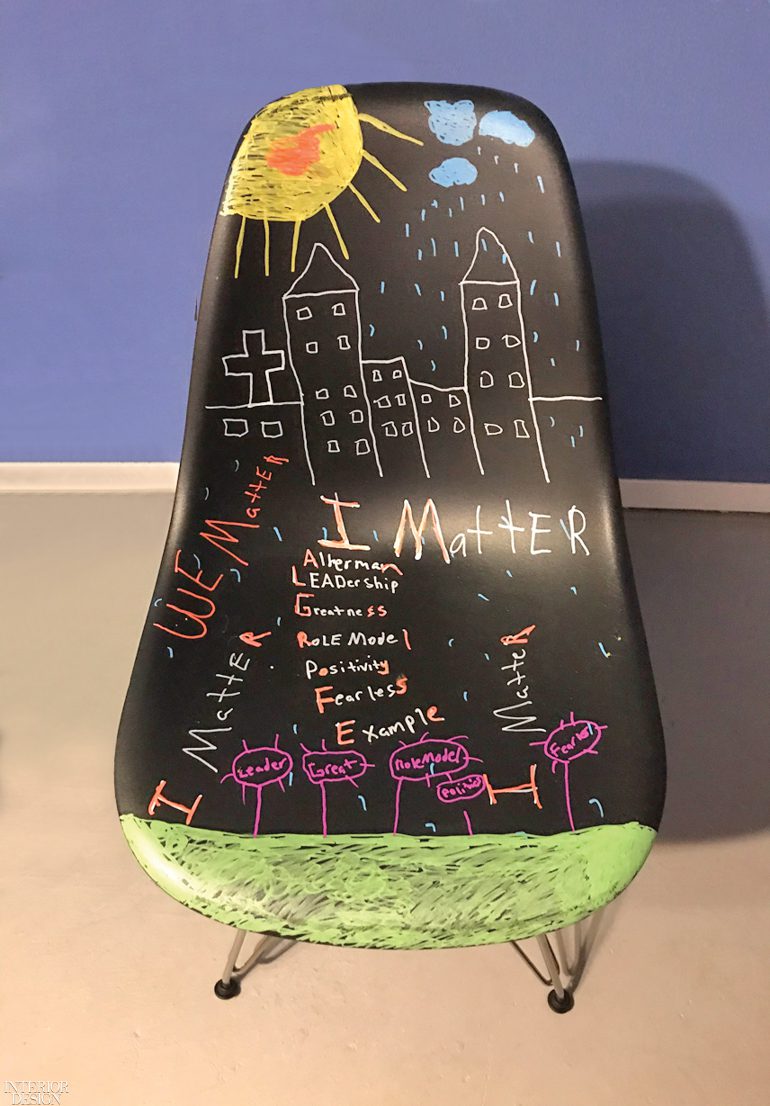 WE MattER
I MattER
Alterman
LEADership
Greatness
RoLE Model
Positivity
Fearless
Example
I MattER
I MatteR
Leader
Great
RoleModel
Fearless
INTERIOR
DESIGN